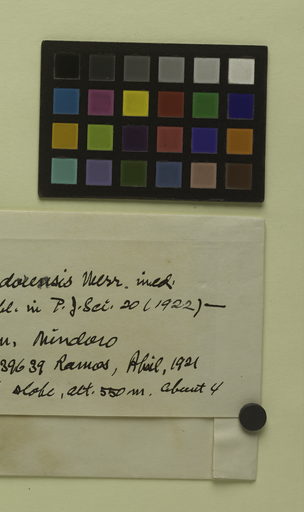 dorensis Merr. ined.
bl. in P.J.Sci. 20 (1922)—
n, Mindoro
39639 Ramos, April, 1921
slope, alt. 550 m. about 4